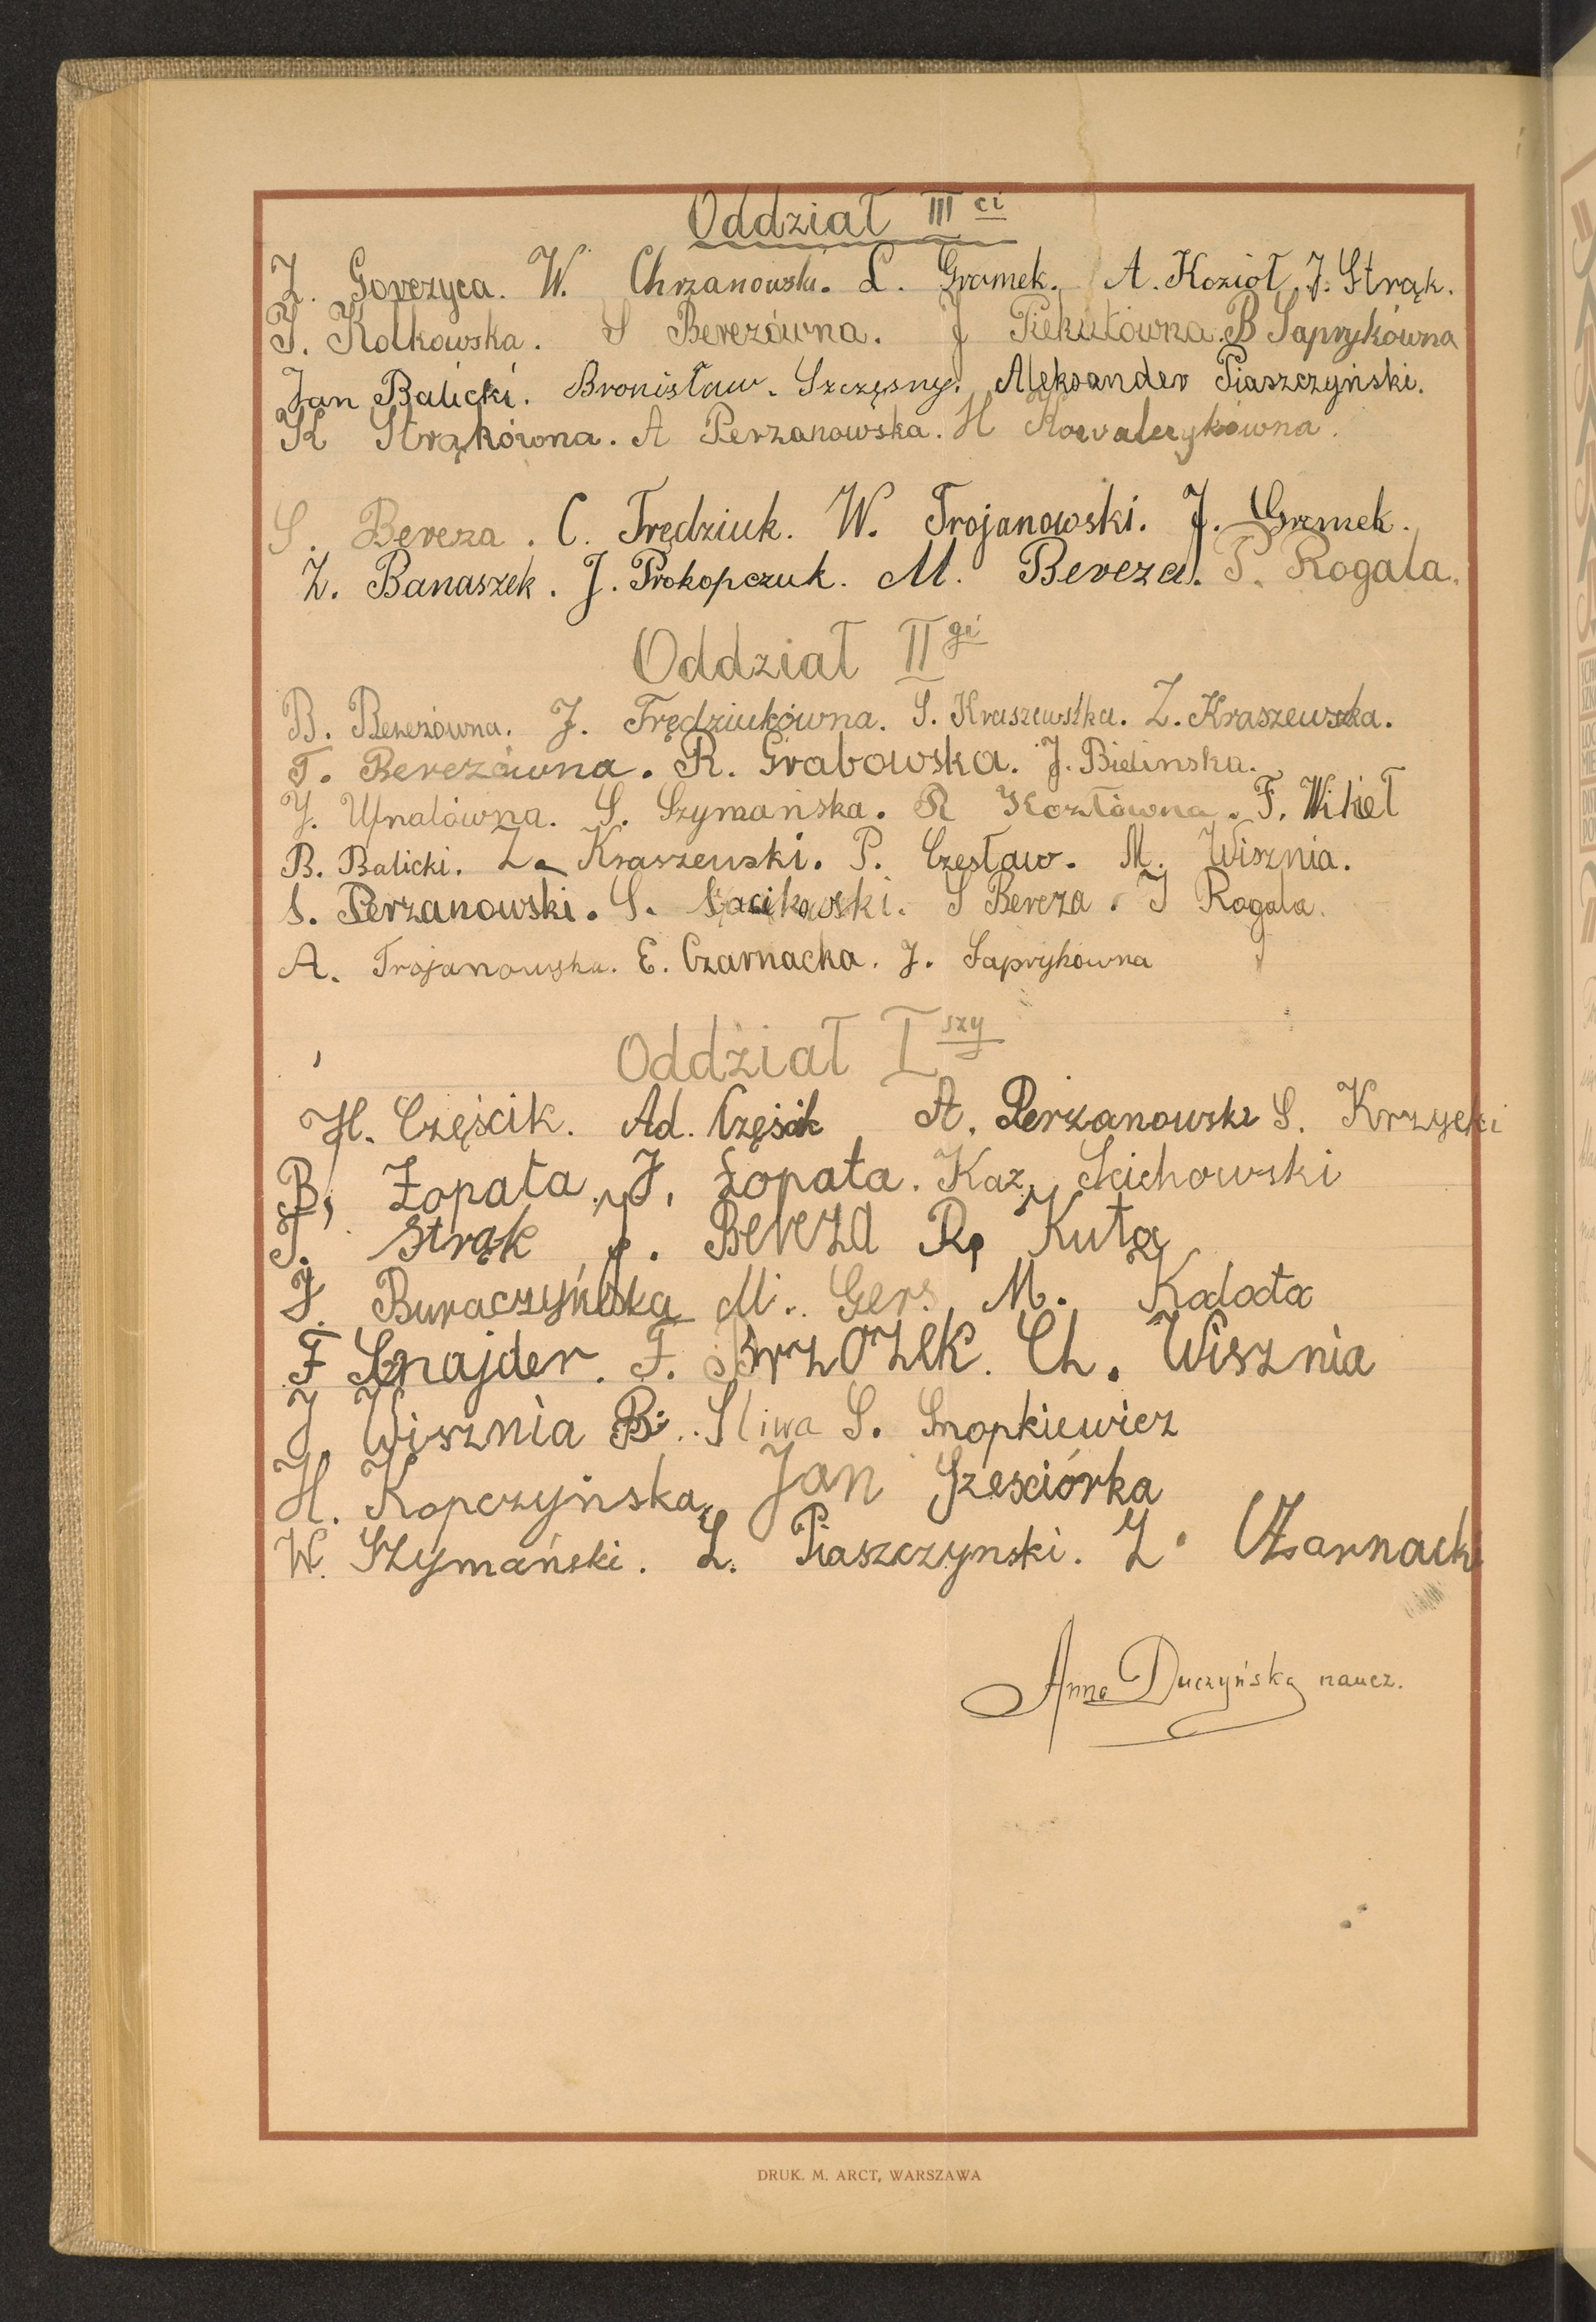 Oddział III ci
Z. Goverzyca. W. Chrzanowski. L. Gromek. A. Kozioł. J. Strąk.
J. Kolkowska. S Berezówna. J Piekutówna. B Saprykówna
Jan Balicki. Bronisław. Szczęsny. Aleksander Piaszczyński.
K Strąkówna. A Perzanowska. H Kowalczykówna.
S. Bereza. C. Trędziuk. W. Trojanowski. J. Gromek.
Z. Banaszek. J. Prokopczuk. M. Bereza. P. Rogala.
Oddział II gi
B. Berezówna. J. Trędziukówna. S. Kraszewska. Z. Kraszewska.
T. Berezówna. R. Grabowska. J. Bielinska.
J. Ufnalówna. S. Szymańska. R Kozłówna. F. Wikieł
B. Balicki. Z. Kraszewski. P. Czesław. M. Wisznia.
S. Perzanowski. S. S Bereza. J Rogala.
A. Trojanowska. E. Czarnacka. J. Saprykówna
Oddział I szy
H. Częścik. Ad. Częścik A. Perzanowski S. Krzycki
B, Łopata. J, Łopata. Kaz. Scichowski
T. Strąk J. Bereza R, Kuta
J. Buraczyńska M. Gers M. Kodota
F Sznajder. F. Brzozek. Ch. Wisznia
J Wisznia B. Sliwa S. Snopkiewicz
H. Kopczyńska, Jan Szesciórka
W. Szymański. L. Piaszczynski. Z. Czarnacki
Anna Duczyńska naucz.
DRUK. M. ARCT, WARSZAWA